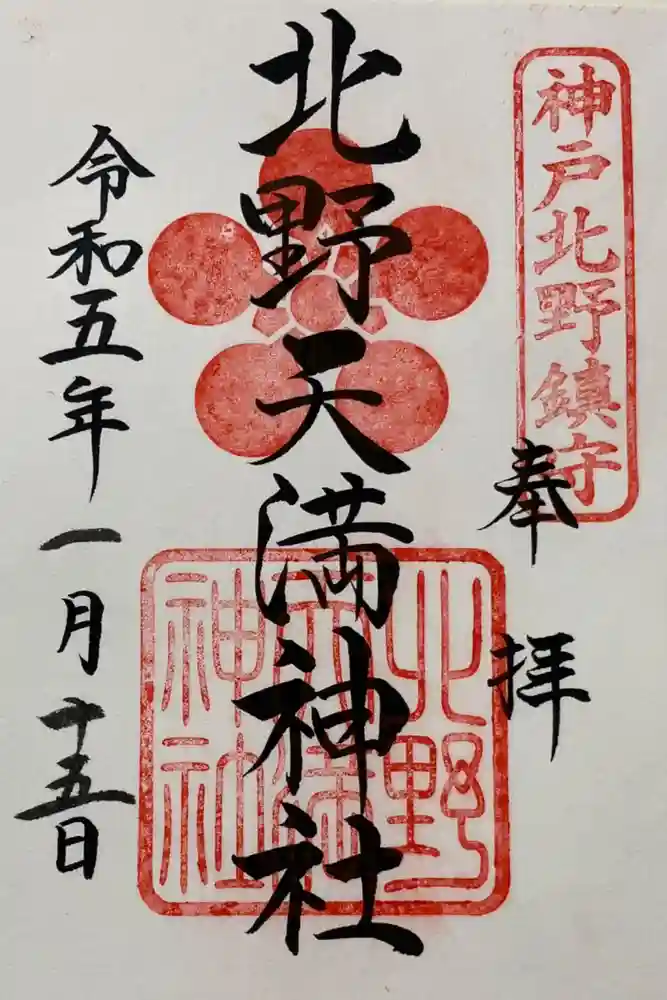 神戸北野鎮守
奉拝
北野天満神社
北野
天満
神社
令和五年一月十五日